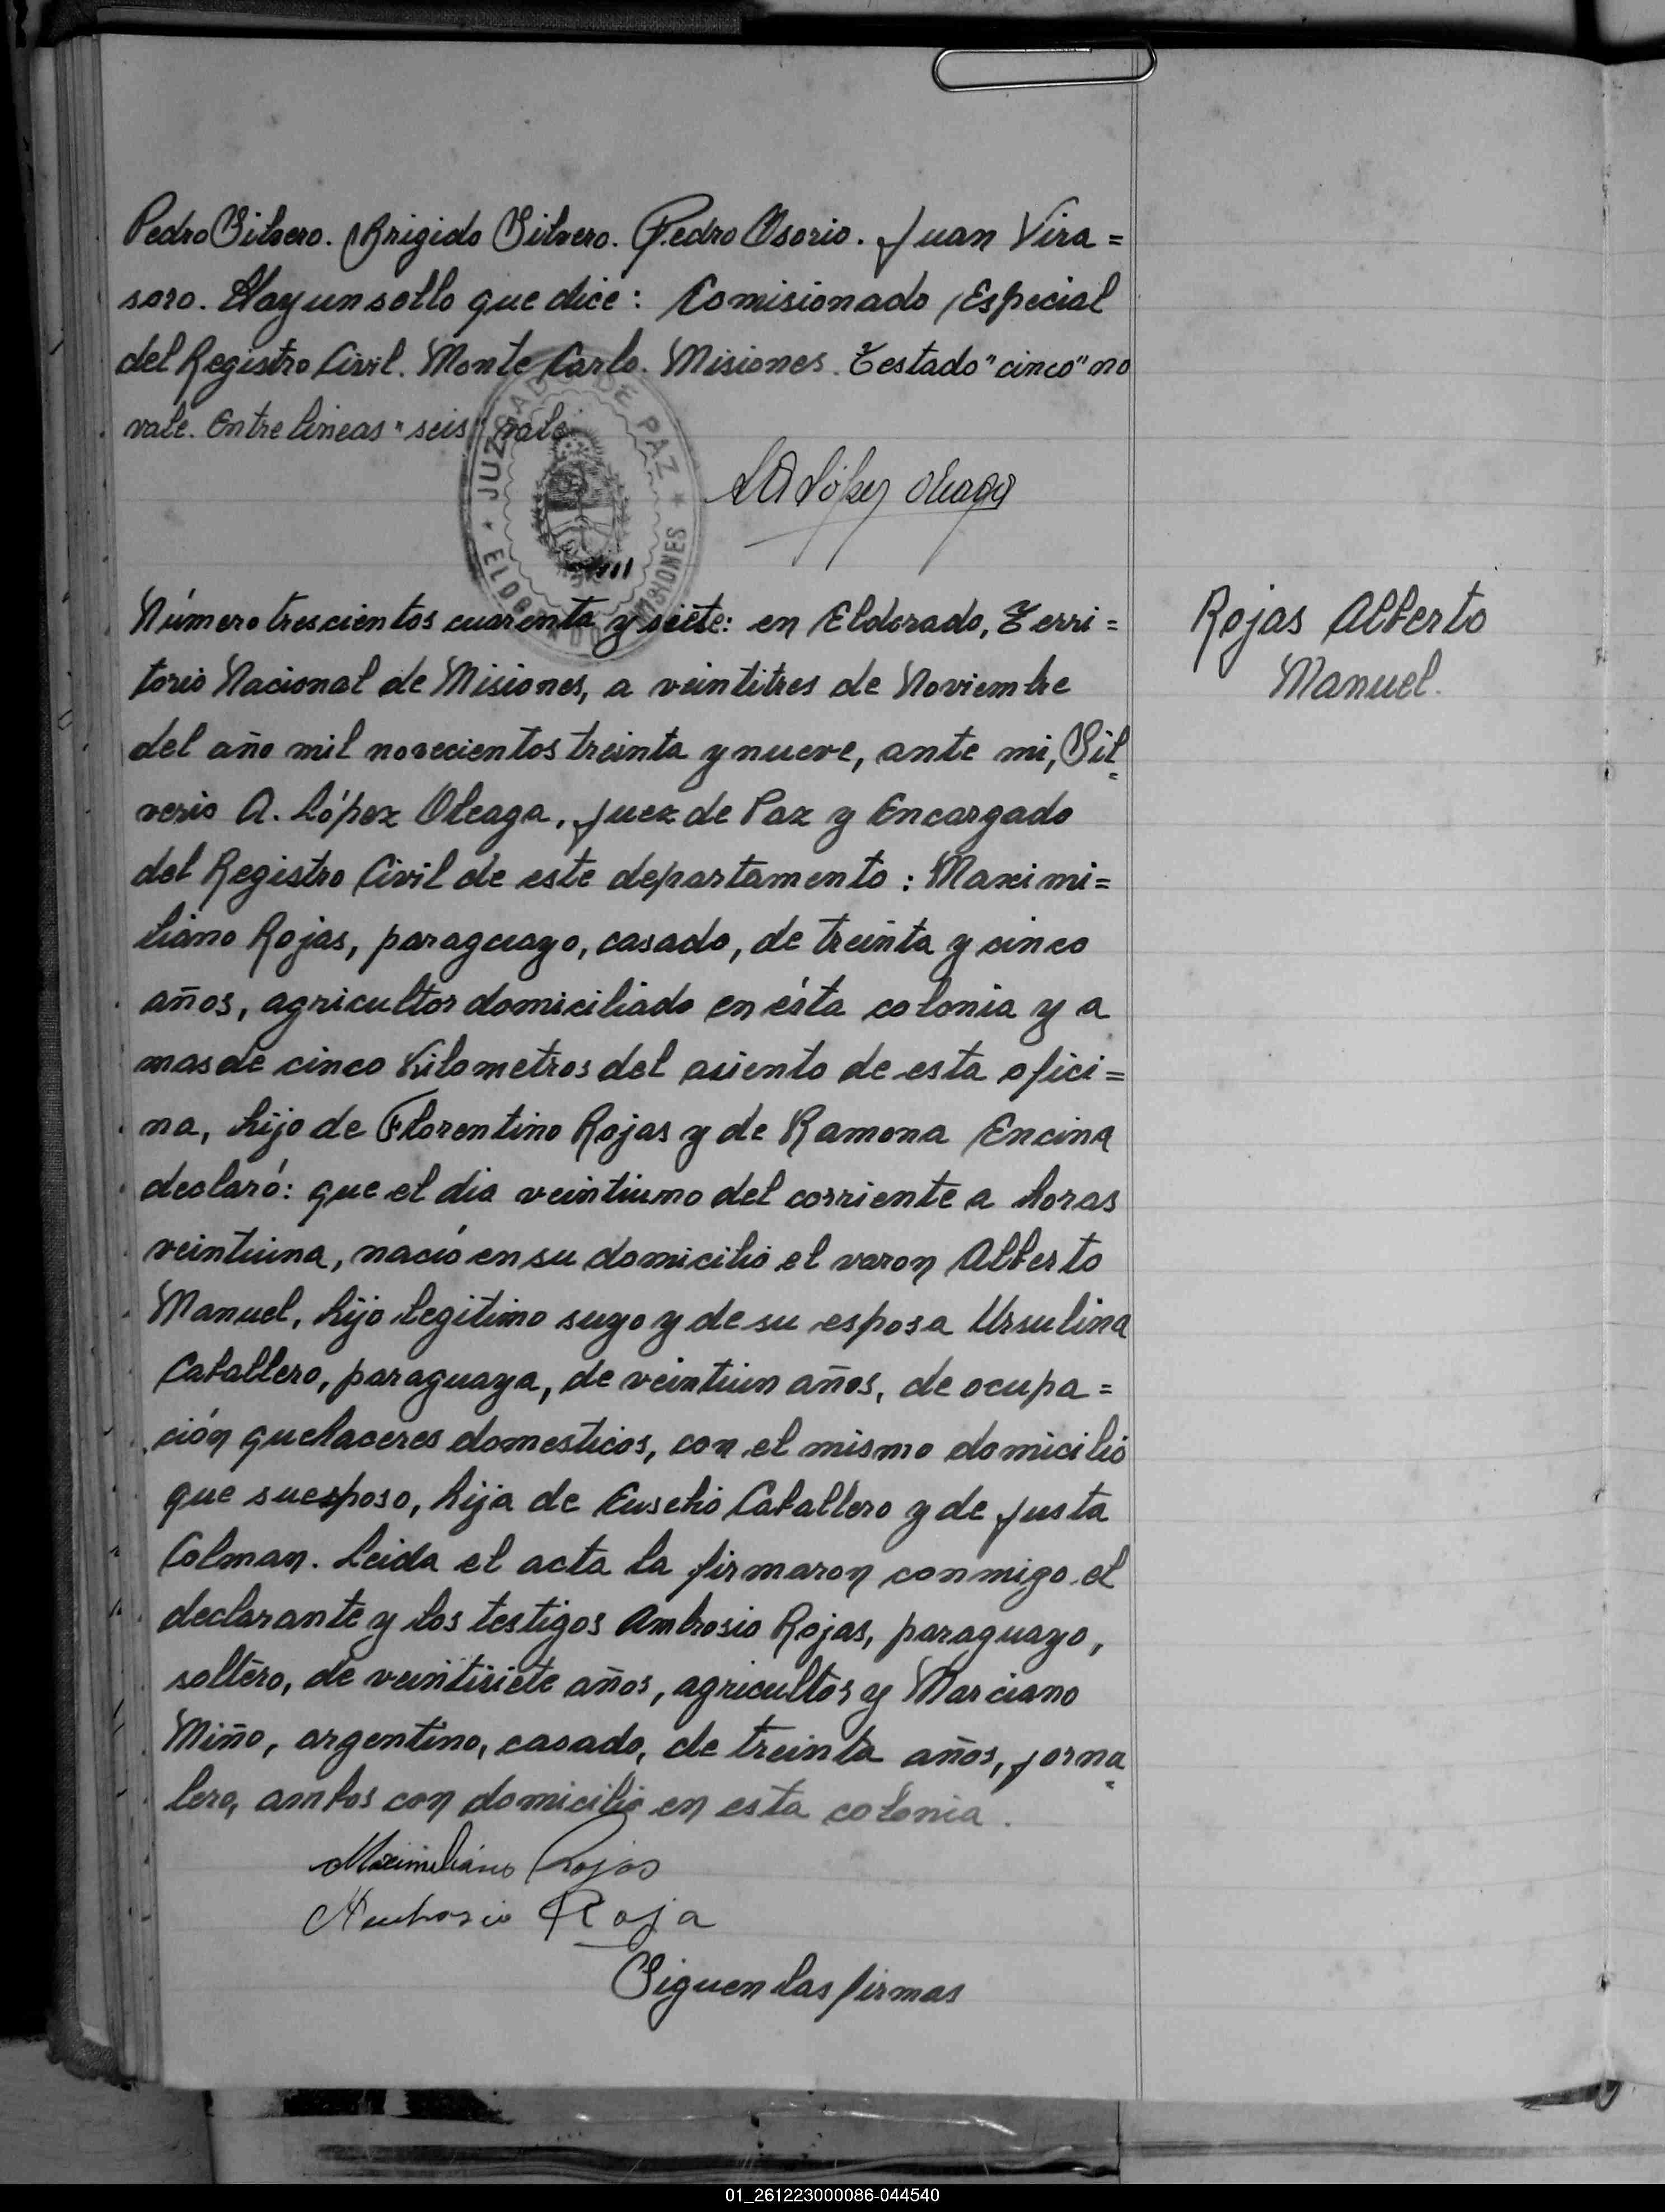 Pedro Silvero. Brigido Silvero. Pedro Osorio. Juan Vira=
soro. Hay un sello que dice: Comisionado Especial
del Registro Civil. Monte Carlo. Misiones. Testado "cinco" no
vale. Entre lineas "seis" vale.
JUZGADO DE PAZ
ELDORADO MISIONES
S A López Oleaga
Número trescientos cuarenta y siete: en Eldorado, Terri=
torio Nacional de Misiones, a veintitres de Noviembre
del año mil novecientos treinta y nueve, ante mi, Sil=
verio A. López Oleaga, Juez de Paz y Encargado
del Registro Civil de este departamento: Maximi=
liano Rojas, paraguayo, casado, de treinta y cinco
años, agricultor domiciliado en ésta colonia y a
mas de cinco kilometros del asiento de esta ofici=
na, hijo de Florentino Rojas y de Ramona Encina
declaró: que el dia veintiuno del corriente a horas
veintiuna, nació en su domicilio el varon Alberto
Manuel, hijo legitimo suyo y de su esposa Ursulina
Caballero, paraguaya, de veintiun años, de ocupa=
ción quehaceres domesticos, con el mismo domicilio
que su esposo, hija de Eusebio Caballero y de Justa
Colman. Leida el acta la firmaron conmigo el
declarante y los testigos Ambrosio Rojas, paraguayo,
soltero, de veintisiete años, agricultor y Marciano
Miño, argentino, casado, de treinta años, jorna=
lero, ambos con domicilio en esta colonia.
Maximiliano Rojas
Ambrosio Roja
Siguen las firmas
Rojas Alberto
Manuel.
01_261223000086-044540